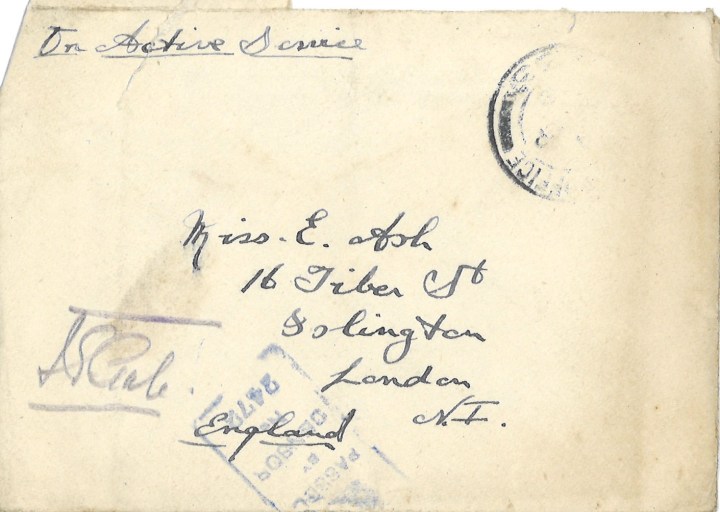 On Active Service
FICE
Miss. E. Ash
16 Tiber St
Islington
London
N.1.
England
PASSED
BY
CENSOR
No
2472